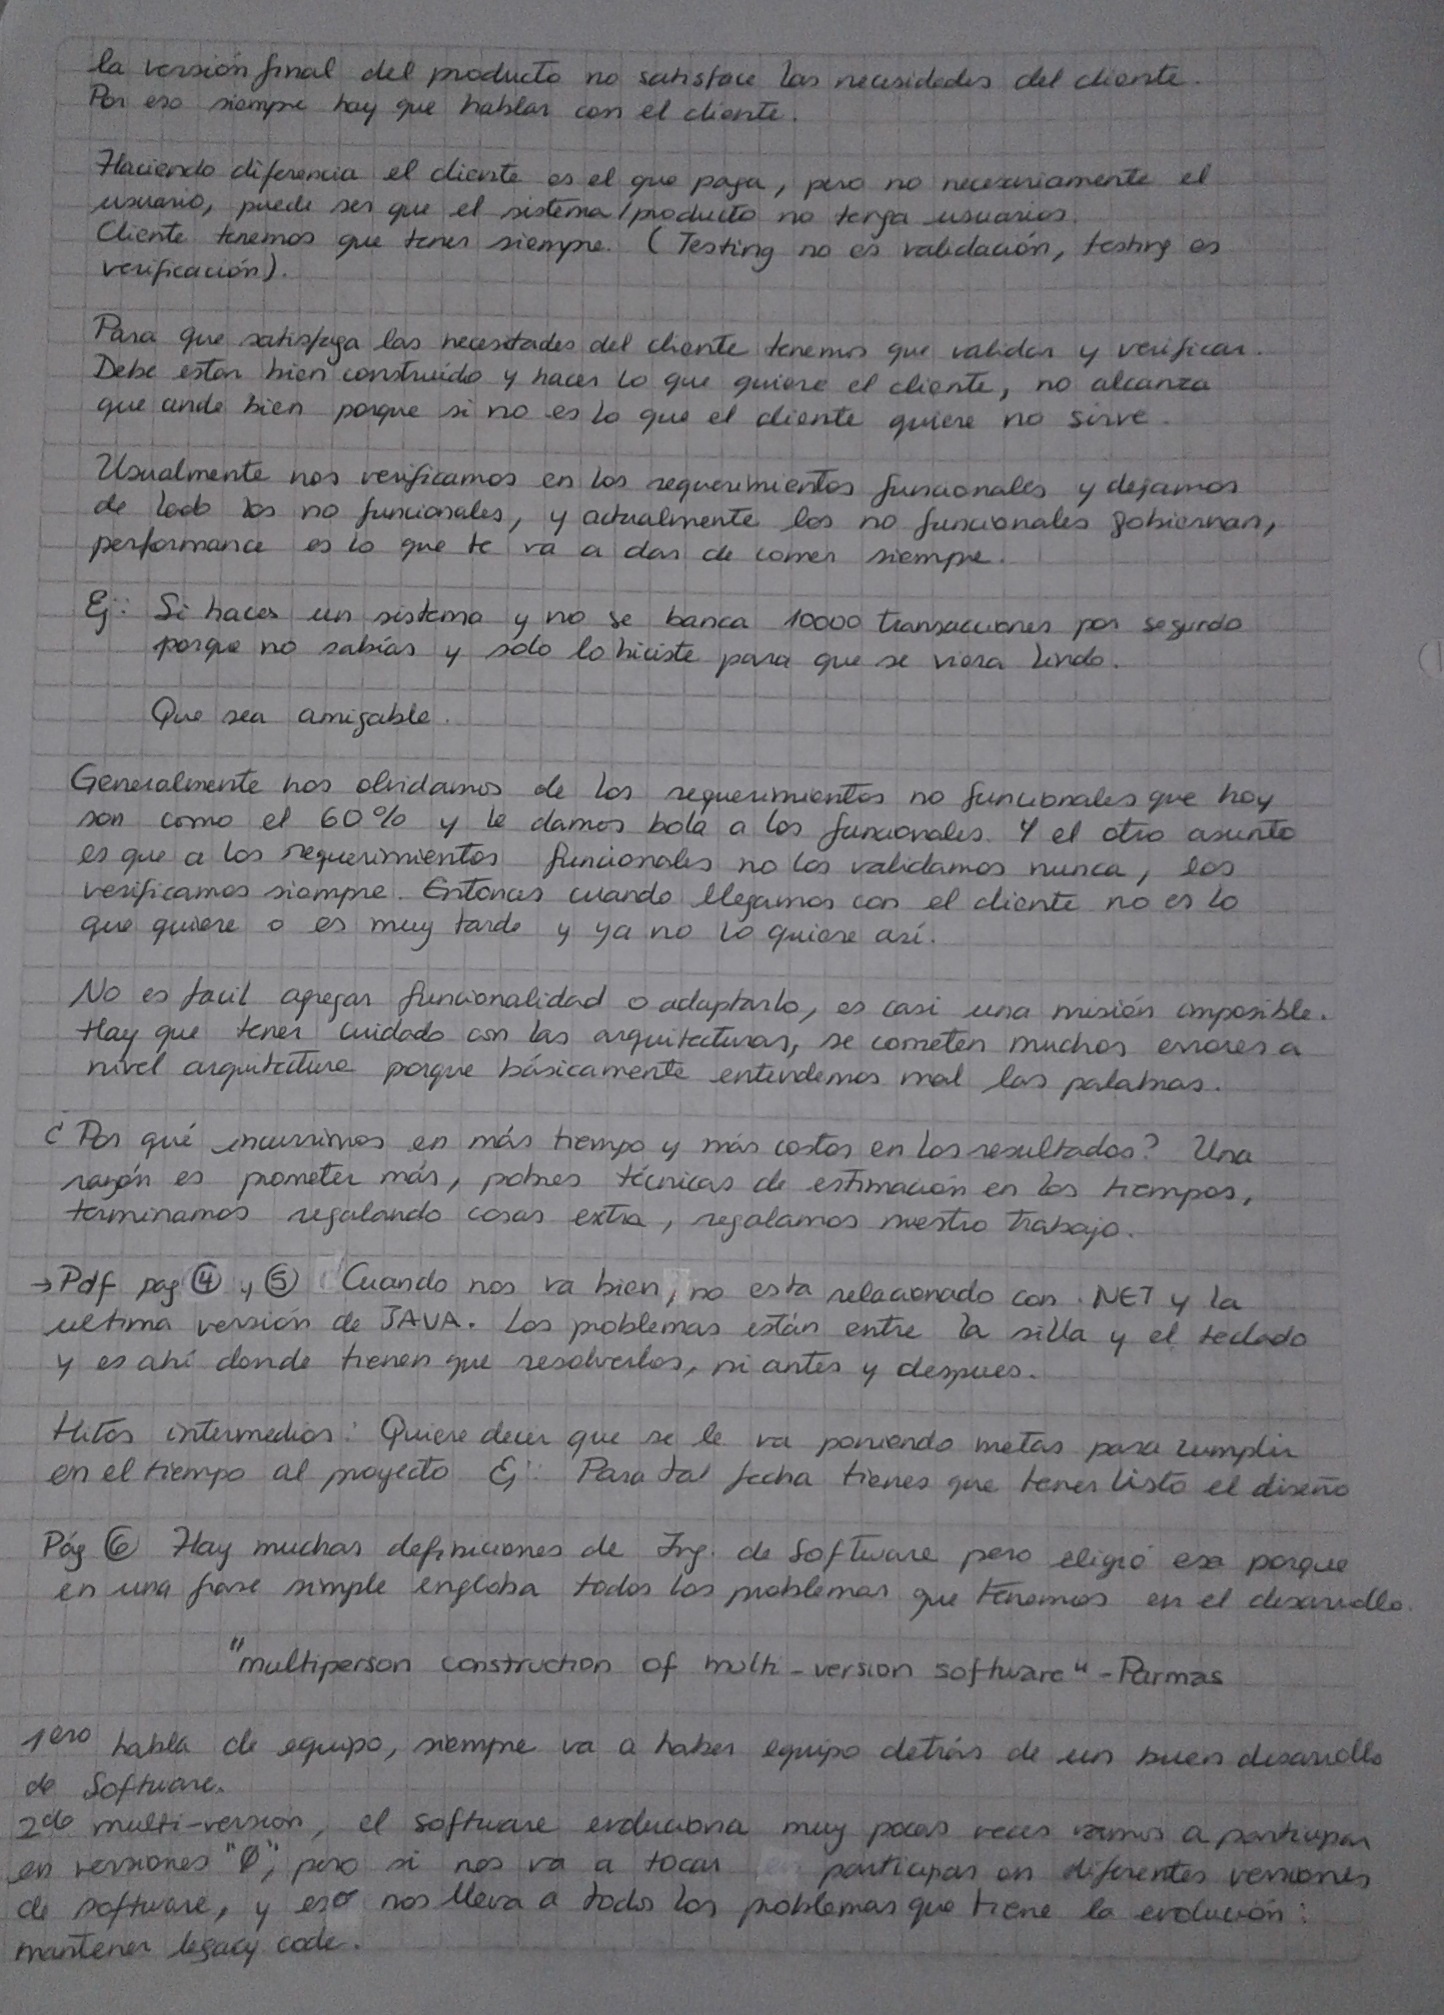 la versión final del producto no satisface las necesidades del cliente.
Por eso siempre hay que hablar con el cliente.
Haciendo diferencia el cliente es el que paga, pero no necesariamente el
usuario, puede ser que el sistema/producto no tenga usuarios.
Cliente tenemos que tener siempre. (Testing no es validación, testing es
verificación).
Para que satisfaga las necesidades del cliente tenemos que validar y verificar.
Debe estar bien construido y hacer lo que quiere el cliente, no alcanza
que ande bien porque si no es lo que el cliente quiere no sirve.
Usualmente nos verificamos en los requerimientos funcionales y dejamos
de lado los no funcionales, y actualmente los no funcionales gobiernan,
performance es lo que te va a dar de comer siempre.
Ej: Si haces un sistema y no se banca 10000 transacciones por segundo
porque no sabías y solo lo hiciste para que se viera lindo.
Que sea amigable.
Generalmente nos olvidamos de los requerimientos no funcionales que hoy
son como el 60% y le damos bola a los funcionales. Y el otro asunto
es que a los requerimientos funcionales no los validamos nunca, los
verificamos siempre. Entonces cuando llegamos con el cliente no es lo
que quiere o es muy tarde y ya no lo quiere así.
No es facil agregar funcionalidad o adaptarlo, es casi una misión imposible.
Hay que tener cuidado con las arquitecturas, se cometen muchos errores a
nivel arquitectura porque básicamente entendemos mal las palabras.
¿Por qué incurrimos en más tiempo y más costos en los resultados? Una
razón es prometer más, pobres técnicas de estimación en los tiempos,
terminamos regalando cosas extra, regalamos nuestro trabajo.
→ Pdf pag ④ y ⑤ Cuando nos va bien, no esta relacionado con .NET y la
ultima versión de JAVA. Los problemas están entre la silla y el teclado
y es ahí donde tienen que resolverlos, ni antes y despues.
Hitos intermedios: Quiere decir que se le va poniendo metas para cumplir
en el tiempo al proyecto Ej: Para tal fecha tienes que tener listo el diseño
Pág ⑥ Hay muchas definiciones de Ing. de Software pero eligió esa porque
en una frase simple engloba todos los problemas que tenemos en el desarrollo.
"multiperson construction of multi-version software" - Parmas
1ero habla de equipo, siempre va a haber equipo detrás de un buen desarrollo
de Software.
2do multi-version, el software evoluciona muy pocas veces vamos a participar
en versiones "0", pero si nos va a tocar participar en diferentes versiones
de software, y eso nos lleva a todos los problemas que tiene la evolución:
mantener legacy code.